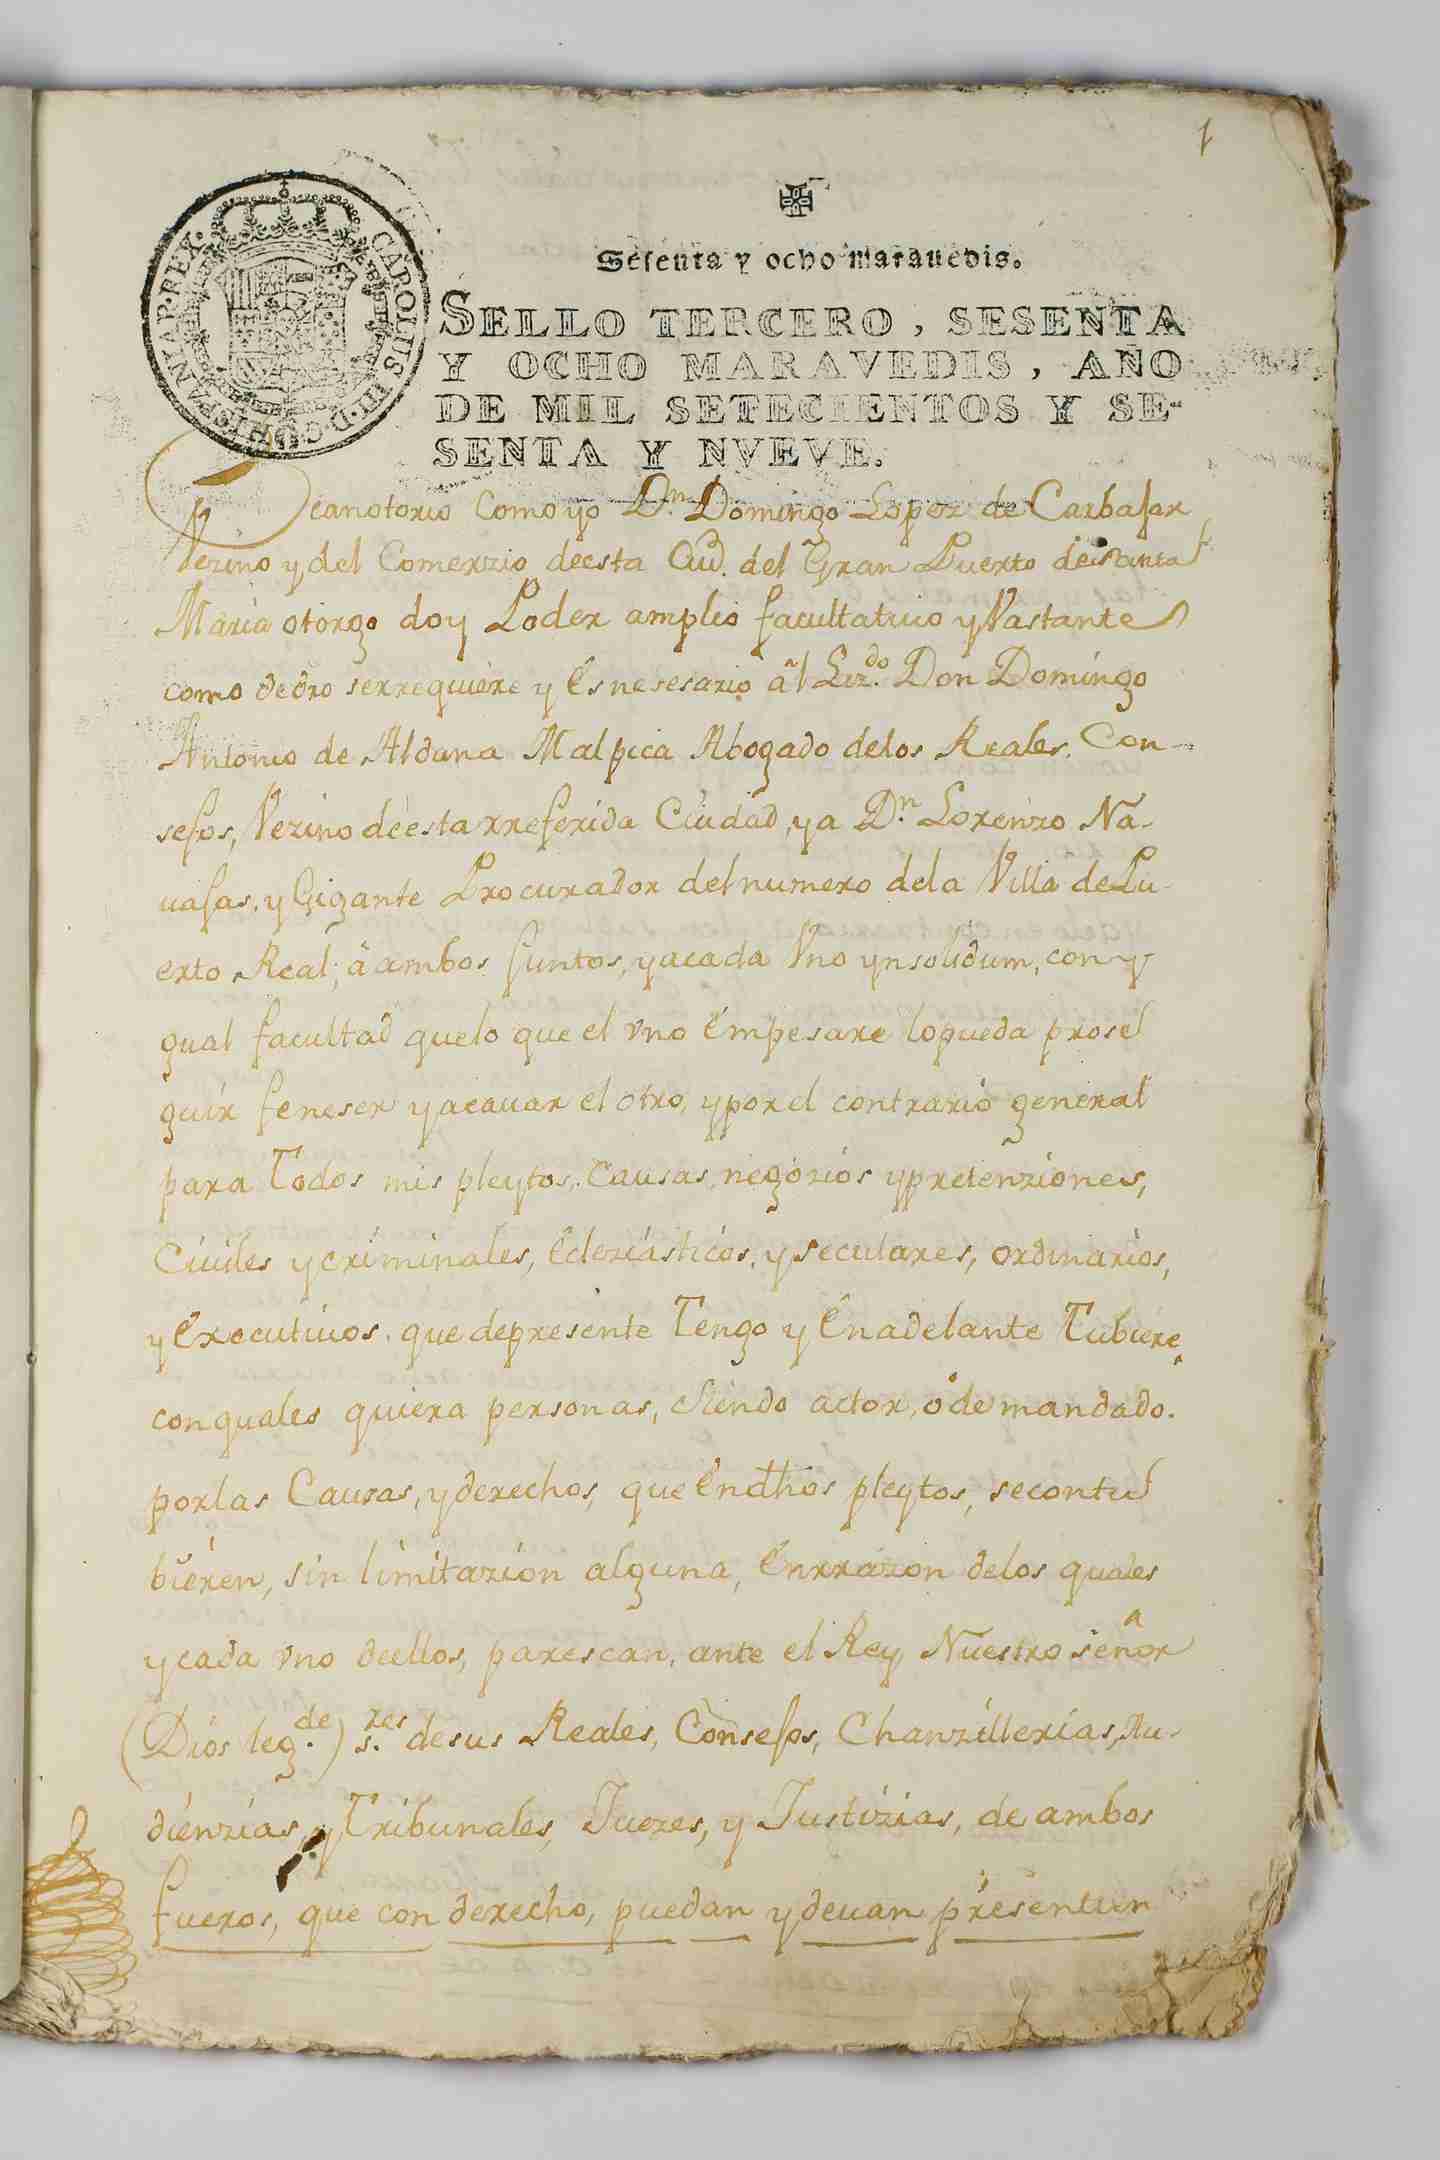 1
CAROLUS III. D. G. HISPANIAR. REX.
Sesenta y ocho maravedis.
SELLO TERCERO, SESENTA
Y OCHO MARAVEDIS, AÑO
DE MIL SETECIENTOS Y SE-
SENTA Y NVEVE.
Seanotorio Como yo Dn. Domingo Lopez de Carbajar
Vezino y del Comerzio deesta Ciud. del Gran Puerto deSanta
Maria otorgo doy Poder amplio facultatiuo y Vastante
como dedro serrequiere y Es nesesario al Lizdo. Don Domingo
Antonio de Aldana Malpica Abogado delos Reales. Con-
sejos, Vezino deesta rreferida Ciudad, ya Dn. Lorenzo Na-
uajas. y Gigante Procurador del numero dela Villa de Pu-
erto Real; â ambos juntos, yacada Vno ynsolidum, con y-
gual facultad quelo que el vno Empesare lopueda prose
guir feneser yacauar el otro, ypor el contrario general
para Todos mis pleytos, Causas, negozios ypretenziones,
Ciuiles y criminales, Ecleziasticos, y seculares, ordinarios,
y Executiuos. que depresente Tengo y Enadelante Tubiere
conquales quiera personas, siendo actor, ô demandado.
porlas Causas, y derechos, que Endhos pleytos, secontu
bieren, sin limitazion alguna, Enrrazon delos quales
ycada vno deellos, parescan, ante el Rey Nuestro señor
(Dios legde.) sres. desus Reales, Consejos, Chanzillerias, Au-
dienzias, y Tribunales, Juezes, y Justizias, de ambos
fueros, que con derecho, puedan y deuan presenten